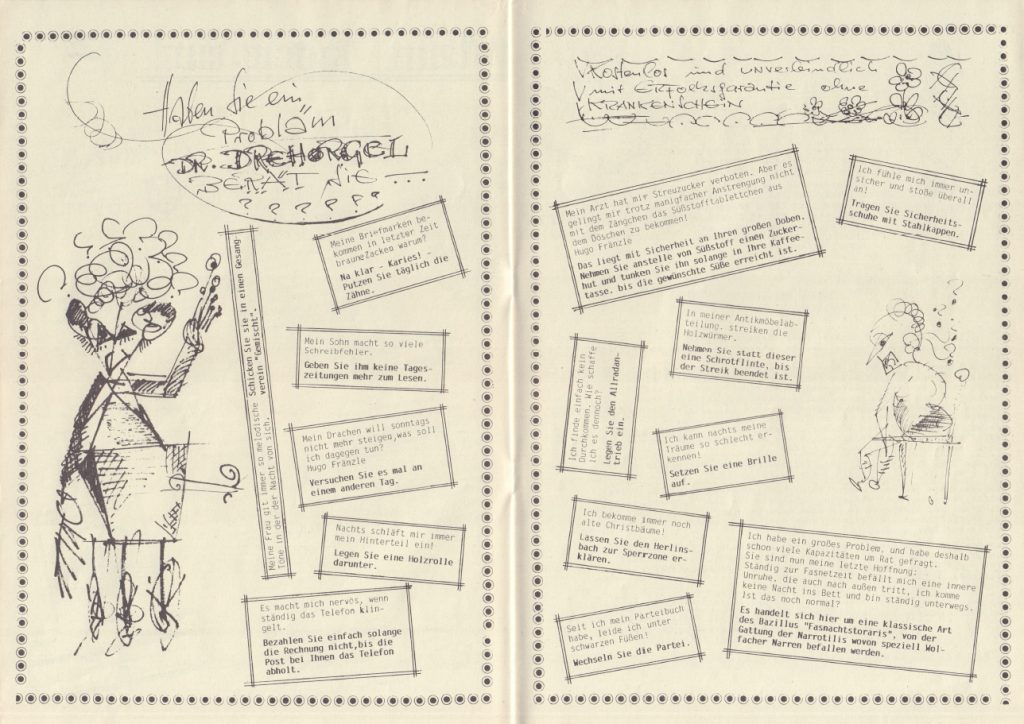 Haben Sie ein
Probläm
DR. DREHORGEL
BERÄT SIE ...
? ? ? ? ? ?
Meine Briefmarken be-
kommen in letzter Zeit
brauneZacken warum?
Na klar - Karies! -
Putzen Sie täglich die
Zähne.
Meine Frau git immer so melodische
Töne in der der Nacht von sich.
Schicken Sie sie in einen Gesang-
verein "Gemischt".
Mein Sohn macht so viele
Schreibfehler.
Geben Sie ihm keine Tages-
zeitungen mehr zum Lesen.
Mein Drachen will sonntags
nicht mehr steigen,was soll
ich dagegen tun?
Hugo Fränzle
Versuchen Sie es mal an
einem anderen Tag.
Nachts schläft mir immer
mein Hinterteil ein!
Legen Sie eine Holzrolle
darunter.
Es macht mich nervös, wenn
ständig das Telefon klin-
gelt.
Bezahlen Sie einfach solange
die Rechnung nicht,bis die
Post bei Ihnen das Telefon
abholt.
Kostenlos und unverbindlich
mit Erfolgsgarantie ohne
KRANKENSCHEIN
Mein Arzt hat mir Streuzucker verboten. Aber es
gelingt mir trotz manigfacher Anstrengung nicht
mit dem Zängchen das Süßstofftablettchen aus
dem Döschen zu bekommen!
Hugo Fränzle
Das liegt mit Sicherheit an Ihren großen Doben.
Nehmen Sie anstelle von Süßstoff einen Zucker-
hut und tunken Sie ihn solange in Ihre Kaffee-
tasse. bis die gewünschte Süße erreicht ist.
Ich fühle mich immer un-
sicher und stoße überall
an!
Tragen Sie Sicherheits-
schuhe mit Stahlkappen.
In meiner Antikmöbelab-
teilung. streiken die
Holzwürmer.
Nehmen Sie statt dieser
eine Schrotflinte, bis
der Streik beendet ist.
Ich finde einfach kein
Durchkommen. Wie schaffe
ich es dennoch?
Legen Sie den Allradan-
trieb ein.
Ich kann nachts meine
Träume so schlecht er-
kennen!
Setzen Sie eine Brille
auf.
Ich bekomme immer noch
alte Christbäume!
Lassen Sie den Herlins-
bach zur Sperrzone er-
klären.
Seit ich mein Parteibuch
habe, leide ich unter
schwarzen Füßen!
Wechseln Sie die Partei.
Ich habe ein großes Problem. und habe deshalb
schon viele Kapazitäten um Rat gefragt.
Sie sind nun meine letzte Hoffnung:
Ständig zur Fasnetzeit befällt mich eine innere
Unruhe. die auch nach außen tritt, ich komme
keine Nacht ins Bett und bin ständig unterwegs.
Ist das noch normal?
Es handelt sich hier um eine klassische Art
des Bazillus "Fasnachtstoraris", von der
Gattung der Narrotilis wovon speziell Wol-
facher Narren befallen werden.